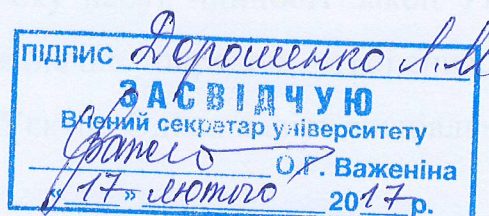 ПІДПИС Дорошенко Л.М
ЗАСВІДЧУЮ
Вчений секретар університету
О.Г. Важеніна
"17" лютого 2017р.